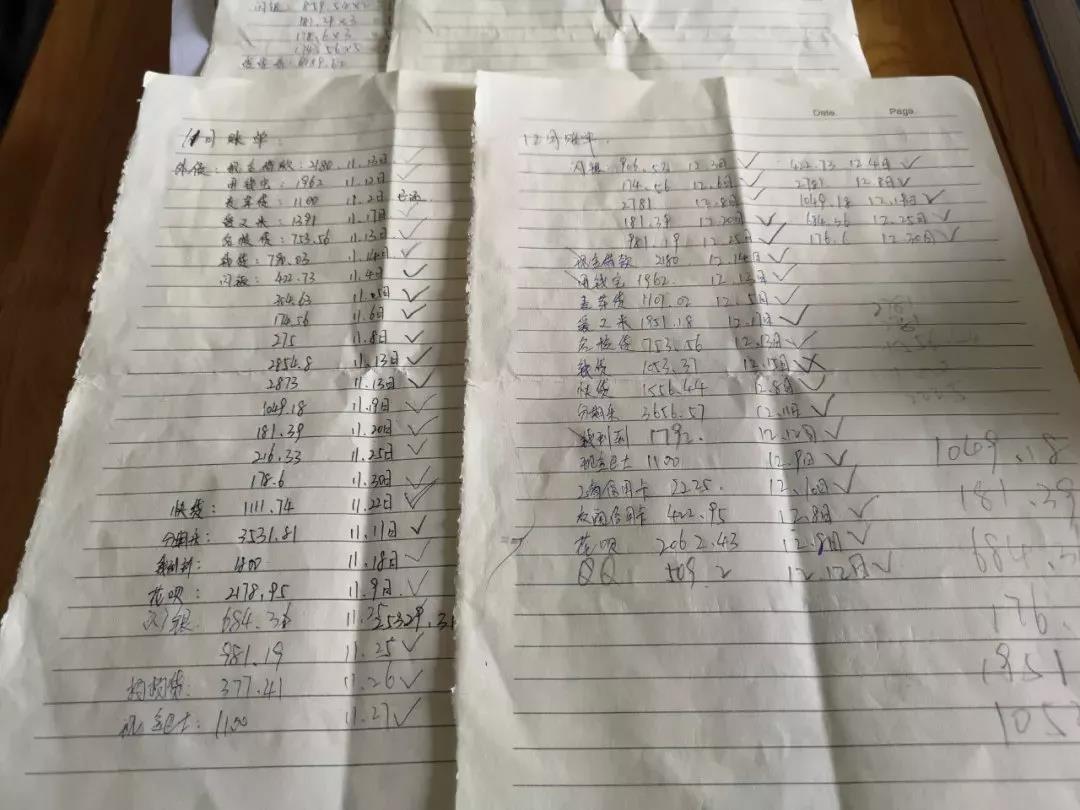 闪银: 859.54×2
181.39×3
178.6×3
11月账单:
现金借款: 2180. 11.13日 ✓
用钱宝: 1962 11.12日 ✓
1100 11.2日
爱又米: 1391 11.17日 ✓
名校贷: 753.56 11.13日 ✓
钱贷: 11.14日 ✓
闪银: 422.73 11.4日 ✓
354.63 11.5日 ✓
174.56 11.6日 ✓
275 11.8日 ✓
2854.8 11.13日 ✓
2873 11.13日 ✓
1049.18 11.19日 ✓
181.39 11.20日 ✓
216.33 11.25日 ✓
178.6 11.30日 ✓
快贷: 1111.74 11.22日 ✓
分期乐: 3531.81 11.11日 ✓
11.18日 ✓
花呗: 2178.95 11.9日 ✓
闪银 684.36 11.25 25329.31
981.19 11.25 ✓
377.41 11.26 ✓
现金巴士: 1100 11.27 ✓
Date. Page.
12月账单.
闪银: 906.52 12.3日 ✓ 422.73 12.4日 ✓
174.56 12.6日 ✓ 2781 12.8日 ✓
2781 12.8日 ✓ 1049.18 12.19日 ✓
181.39 12.20日 ✓ 684.36 12.25日 ✓
981.19 12.25日 ✓ 176.6 12.30日 ✓
现金借款 2180 12.14日 ✓
用钱宝 1962. 12.12日 ✓
1101.02 12.5日 ✓
爱又米 1951.18 12.17日 ✓
名校贷 753.56 12.13日 ✓
钱贷 1053.37 12.15日
快贷 1556.44 12.8日 ✓
分期乐 3656.57 12.11日 ✓
1792. 12.12日 ✓
现金巴士 1100 12.9日 ✓
工商信用卡 2225. 12.10日 ✓
信用卡 422.95 12.8日 ✓
花呗 2062.43 12.9日 ✓
QQ 509.2 12.12日 ✓
2781
1049.18
181.39
684.3
176.
1951
105